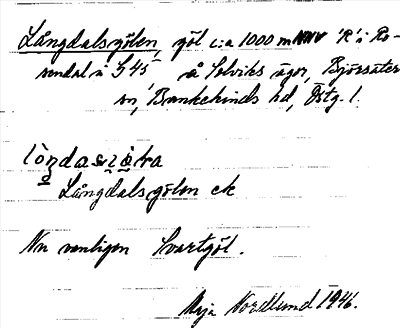 Långdalsgölen, göl c:a 1000 m NNV 'R' i Ro-
sendal å S45 å Solviks ägor, Björsäter
sn, Bankekinds hd, Östg. l.
Långdalsgölen ek
Nu vanligen Svartgöl.
Maja Nordlund 1946.